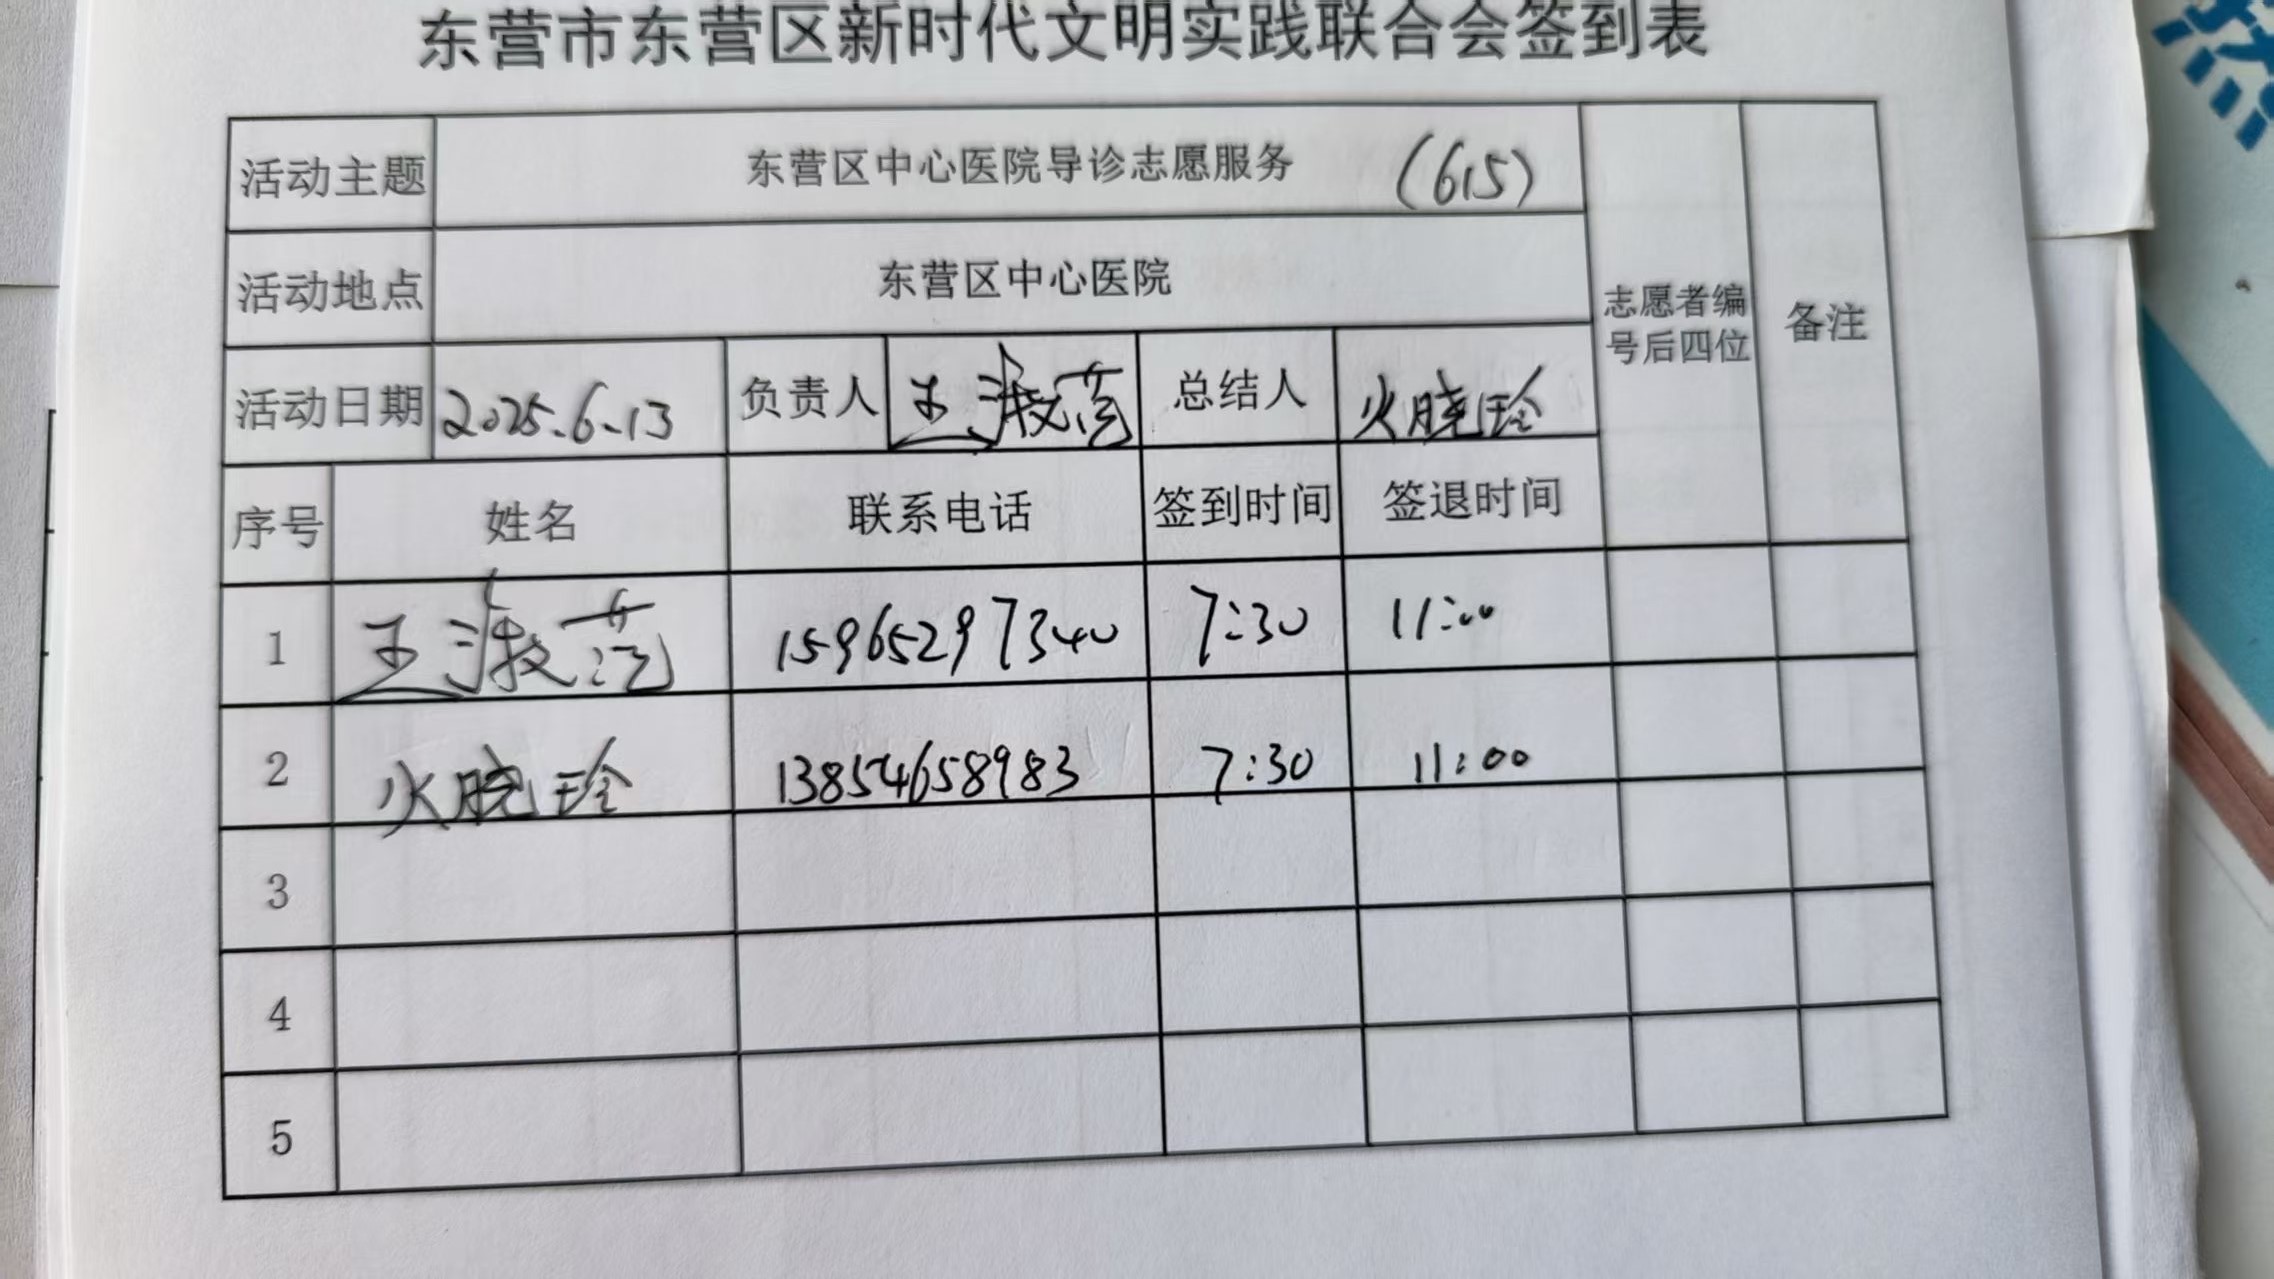 东营市东营区新时代文明实践联合会签到表
活动主题 东营区中心医院导诊志愿服务 (615)
活动地点 东营区中心医院
志愿者编号后四位 备注
活动日期 2025.6.13 负责人 王淑范 总结人 火晓玲
序号 姓名 联系电话 签到时间 签退时间
1 王淑范 15965297340 7:30 11:00
2 火晓玲 13854658983 7:30 11:00
3
4
5